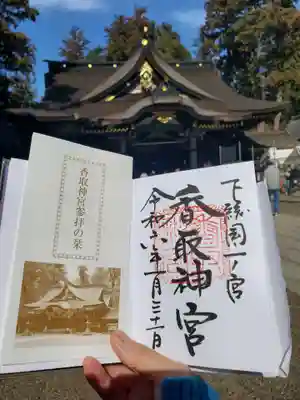 下総国一之宮
香取神宮
令和八年一月三十一日
香取神宮参拝の栞